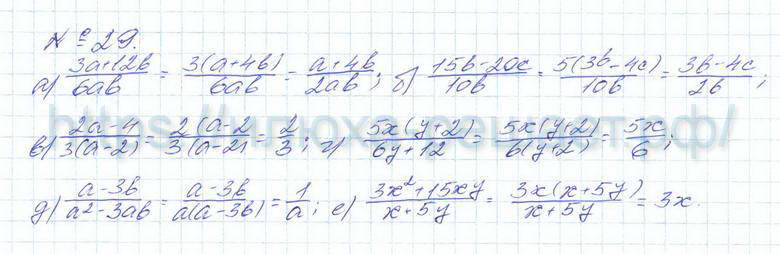 № 29.
а) (3a+12b)/(6ab) = 3(a+4b)/(6ab) = (a+4b)/(2ab); б) (15b-20c)/(10b) = 5(3b-4c)/(10b) = (3b-4c)/(2b);
в) (2a-4)/(3(a-2)) = (2(a-2)/(3(a-2)) = 2/3; г) 5x(y+2)/(6y+12) = 5x(y+2)/(6(y+2)) = 5x/6;
д) (a-3b)/(a²-3ab) = (a-3b)/(a(a-3b)) = 1/a; е) (3x²+15xy)/(x+5y) = 3x(x+5y)/(x+5y) = 3x.